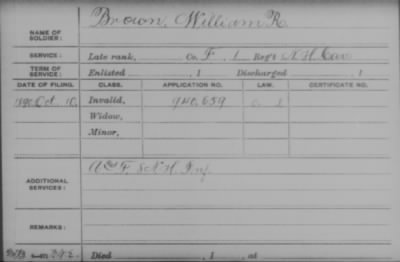 Brown, William R.
NAME OF SOLDIER:
SERVICE: Late rank, Co. F, 1 Reg't N.H. Cav
TERM OF SERVICE: Enlisted , 1 Discharged , 1
DATE OF FILING. CLASS. APPLICATION NO. LAW. CERTIFICATE NO.
1890 Oct. 10, Invalid, 940.659
Widow,
Minor,
ADDITIONAL SERVICES: F 8 N.H. Inf.
REMARKS:
Died , 1 , at